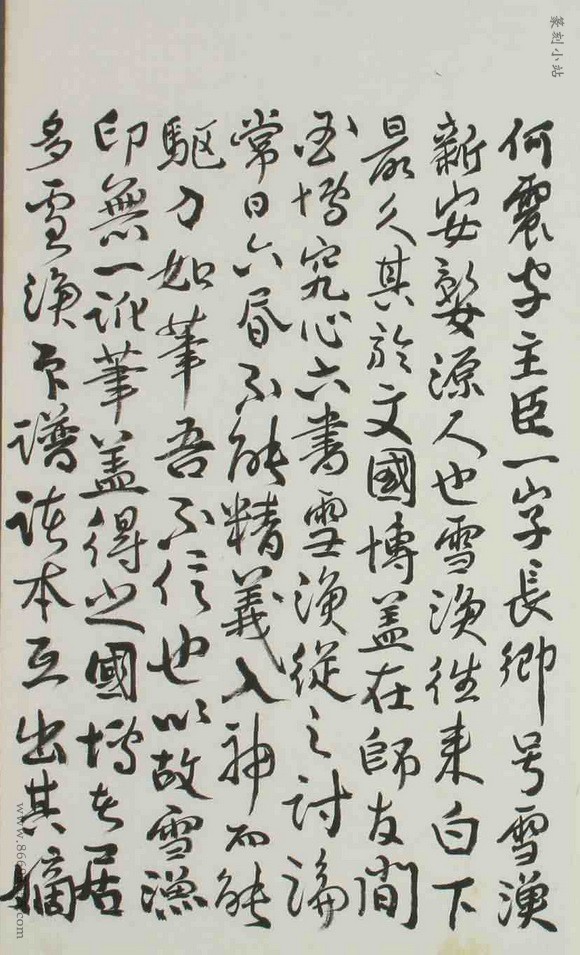 篆刻小站
何震字主臣一字長卿号雪漁
新安婺源人也雪漁往来白下
最久其於文國博盖在師友間
国博究心六書雪漁從之討論
常曰六書不能精義入神而能
驅刀如筆吾不信也以故雪漁
印無一訛筆盖得之國博者居
多雪漁印譜諸本互出其嫡